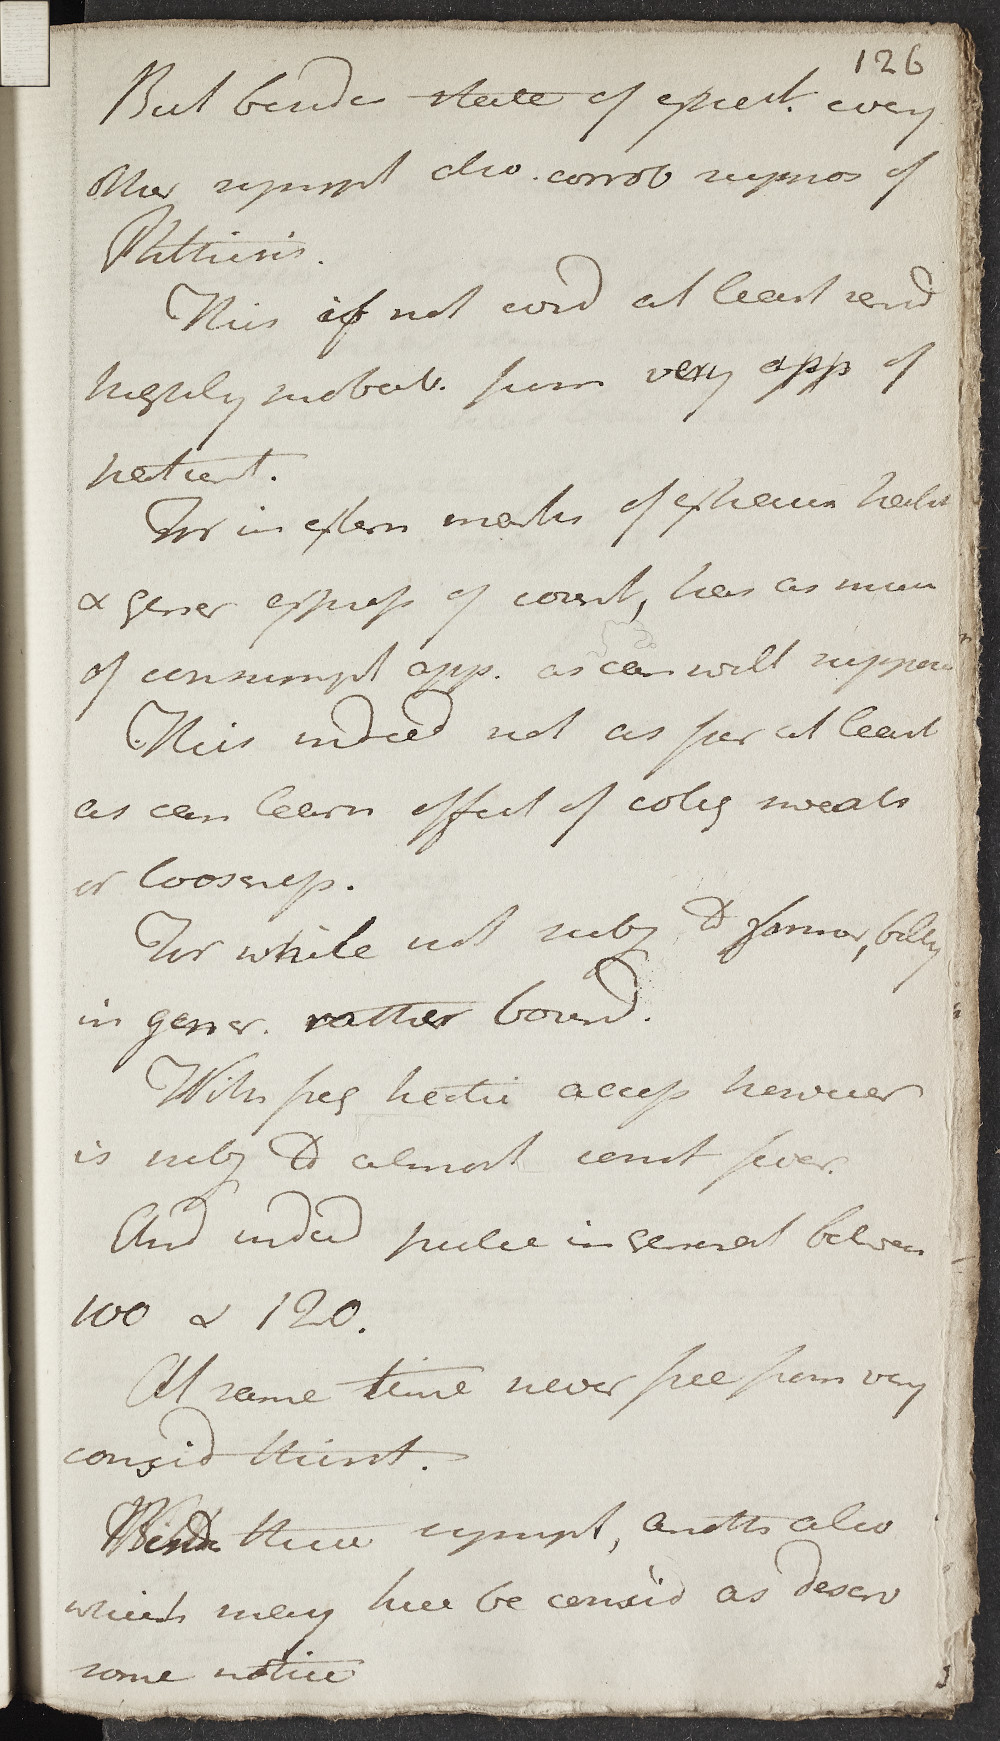 126
But beside state of expect. every
other sympt also corrob suspicios of
Phthisis.
This if not cond at least rend
highly probab. from very app of
patient.
For in extern marks of hectic
& gener express of count, has as much
of consumpt app. as can well suppose
This indeed not as far at least
as can learn effect of colliq sweats
or looseness.
For while not subj to former, belly
in gener. rather bound.
With freq hectic access however
is subj to almost const fever.
And indeed pulse in general between
100 & 120.
At same time never free from very
consid thirst.
Besides these sympt, another also
which may here be consid as deserv
some notice